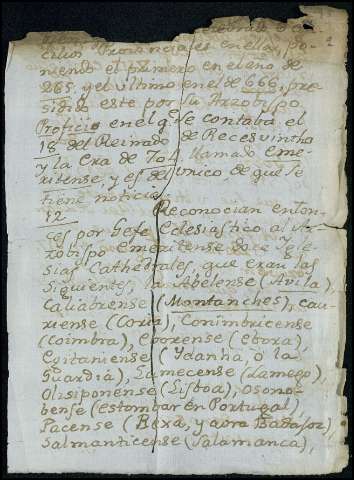 cilios Provinciales en ella, po-
niendo el primero en el año de
285. y el ultimo en el de 666, pre-
sidido este por su Arzobispo
Proficio en el qe. se contaba el
18 del Reinado de Recesvintho
y la Era de 704, llamado Eme-
ritense, y es del unico de que se
tiene noticia.
12 Reconocian enton-
ces por Gefe Eclesiastico al Ar-
zobispo Emeritense doce Ygle-
sias Cathedrales, que eran las
siguientes, la Abelense (Avila),
Caliabrense (Montanches), cau-
riense (Coria), Conimbricense
(Coimbra), Eborense (Ebora),
Egitaniense (Ydanha, ò la
Guardia), Lamecense (Lamego),
Olisiponense (Lisboa), Osono-
bense (estombar en Portugal),
Pacense (Bexa, y aora Badajoz),
Salmanticense (Salamanca),